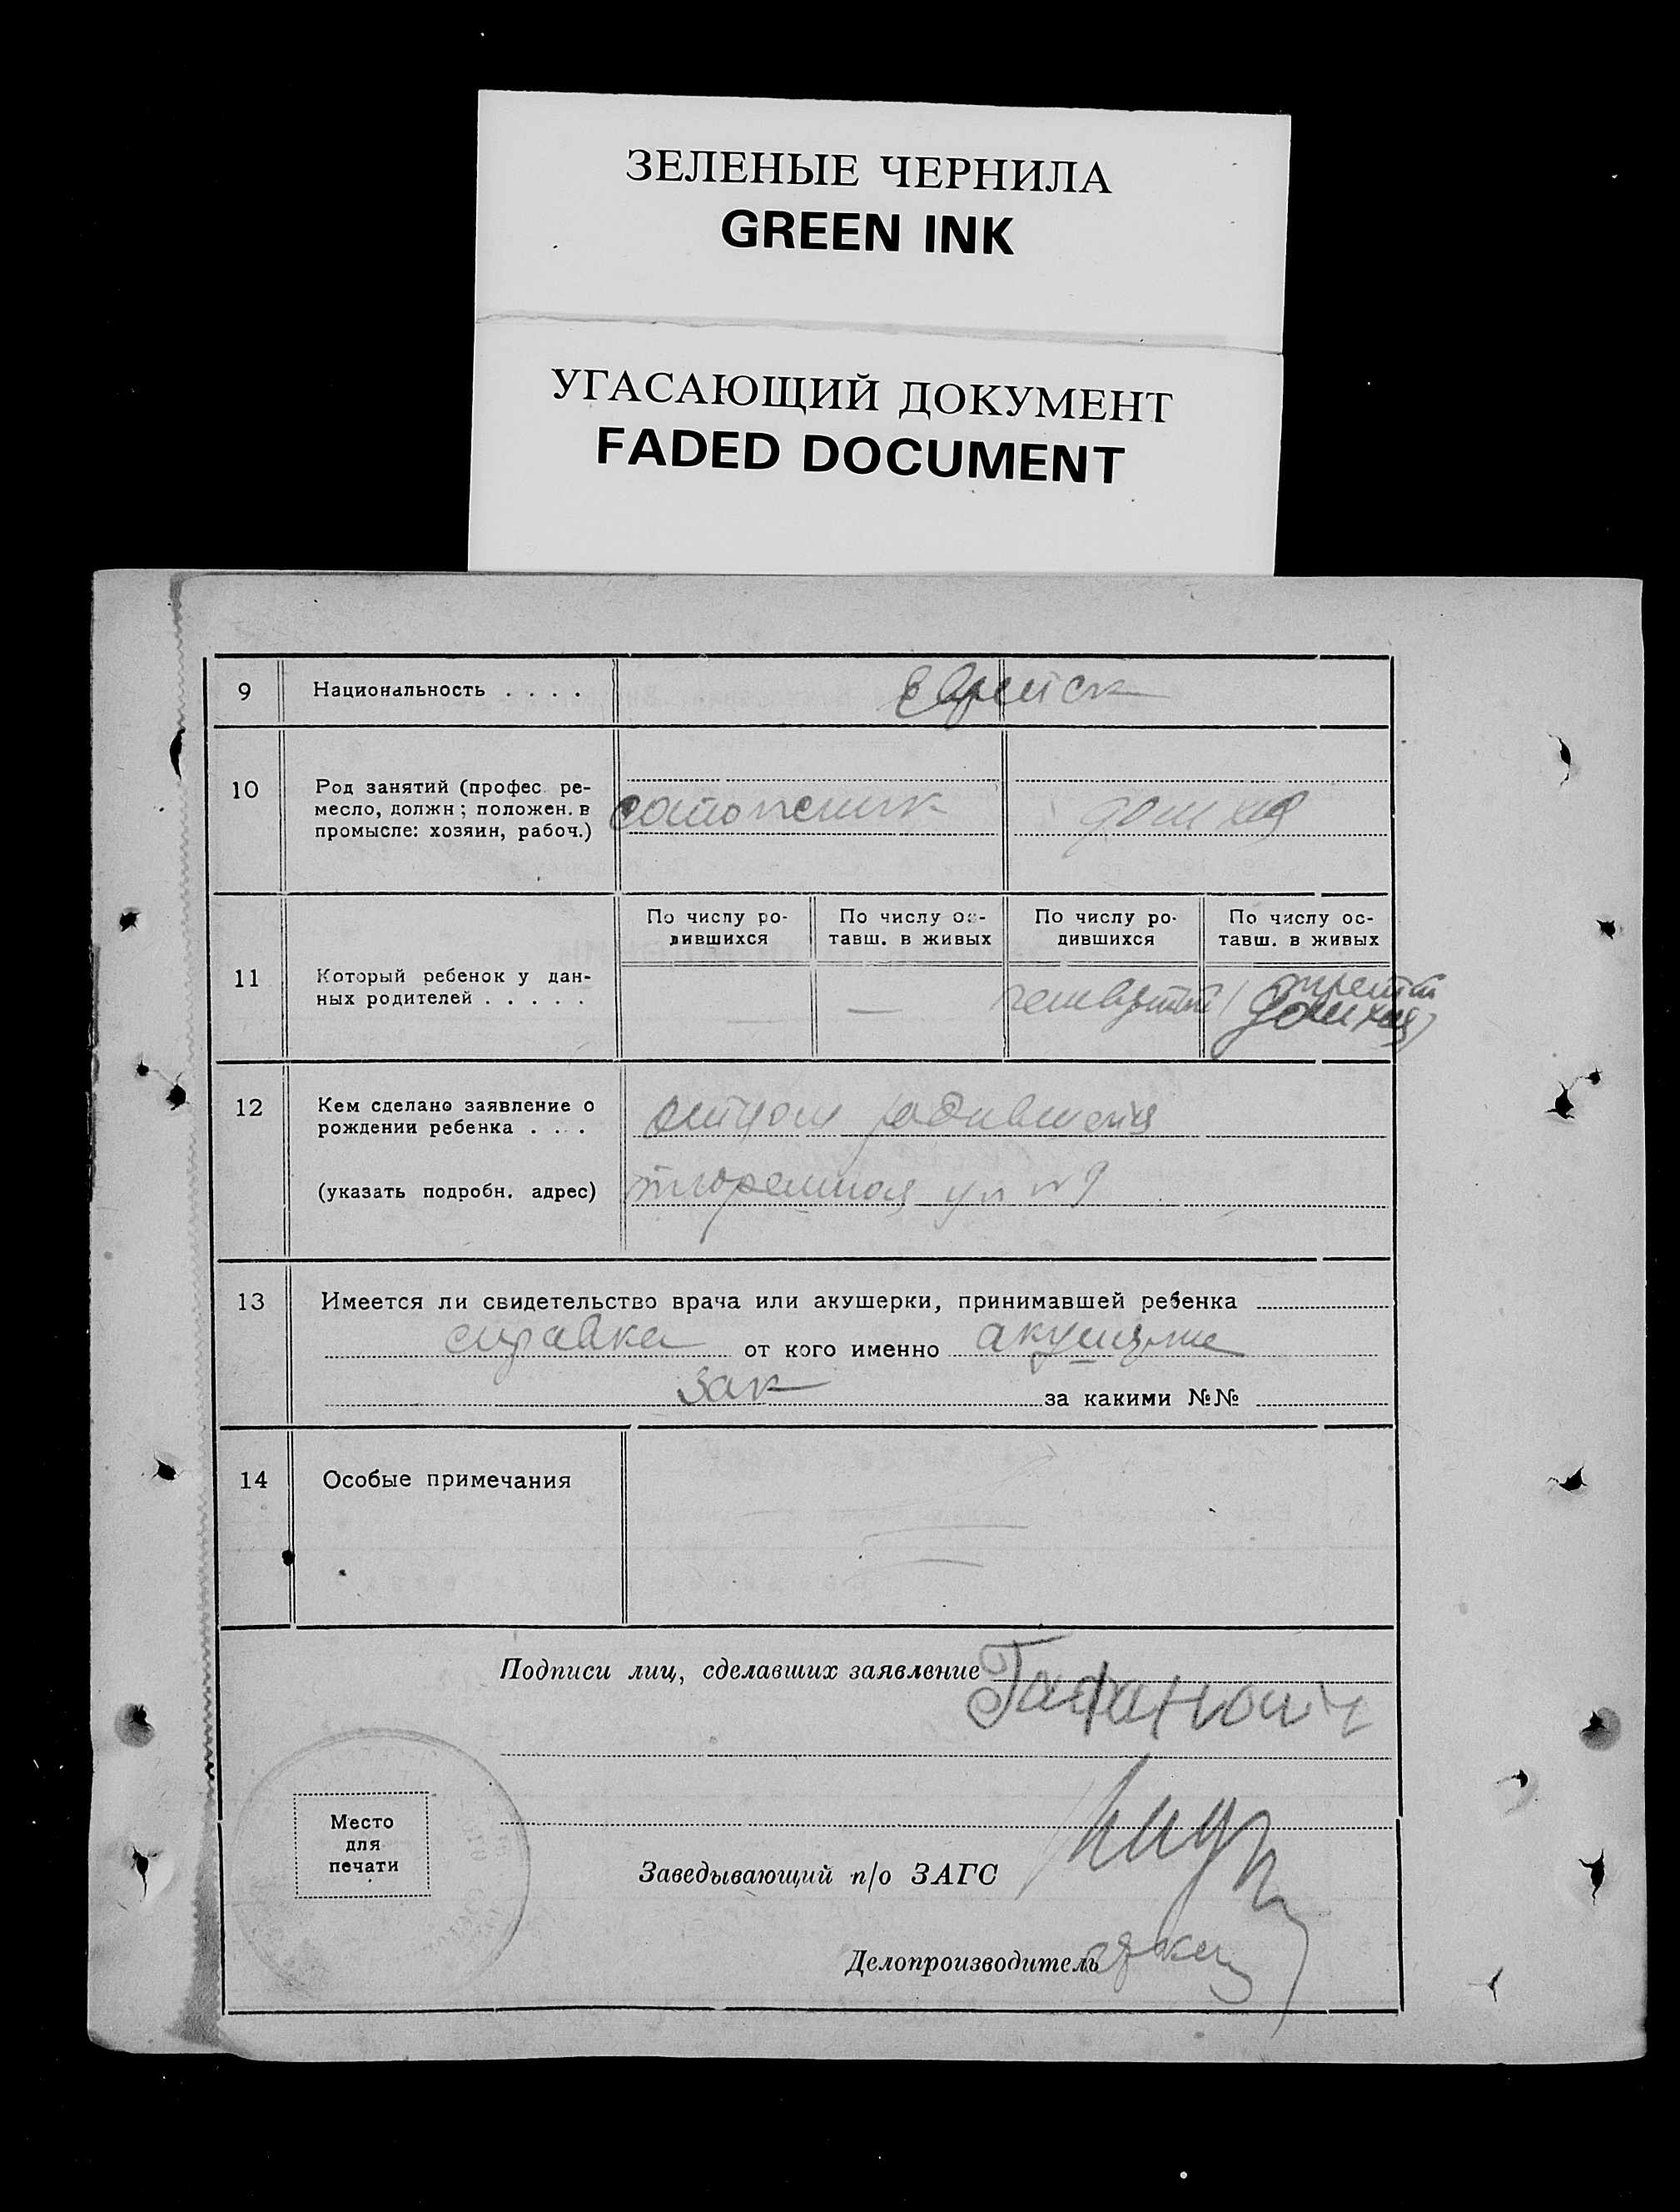 ЗЕЛЕНЫЕ ЧЕРНИЛА
GREEN INK
УГАСАЮЩИЙ ДОКУМЕНТ
FADED DOCUMENT
9 Национальность . . . . Еврейск
10 Род занятий (профес ре-
месло, должн; положен. в
промысле: хозяин, рабоч.)
сапожник дом хоз
По числу ро-
дившихся
По числу ос-
тавш. в живых
По числу ро-
дившихся
По числу ос-
тавш. в живых
11 Который ребенок у дан-
ных родителей . . . . .
— — четвертый третий
дом хоз
12 Кем сделано заявление о
рождении ребенка . . .
отцом родившегося
(указать подробн. адрес) тюремная ул № 9
13 Имеется ли свидетельство врача или акушерки, принимавшей ребенка
справка от кого именно акушерки
Зак за какими №№
14 Особые примечания
Подписи лиц, сделавших заявление
Место
для
печати
Заведывающий п/о ЗАГС
Делопроизводитель